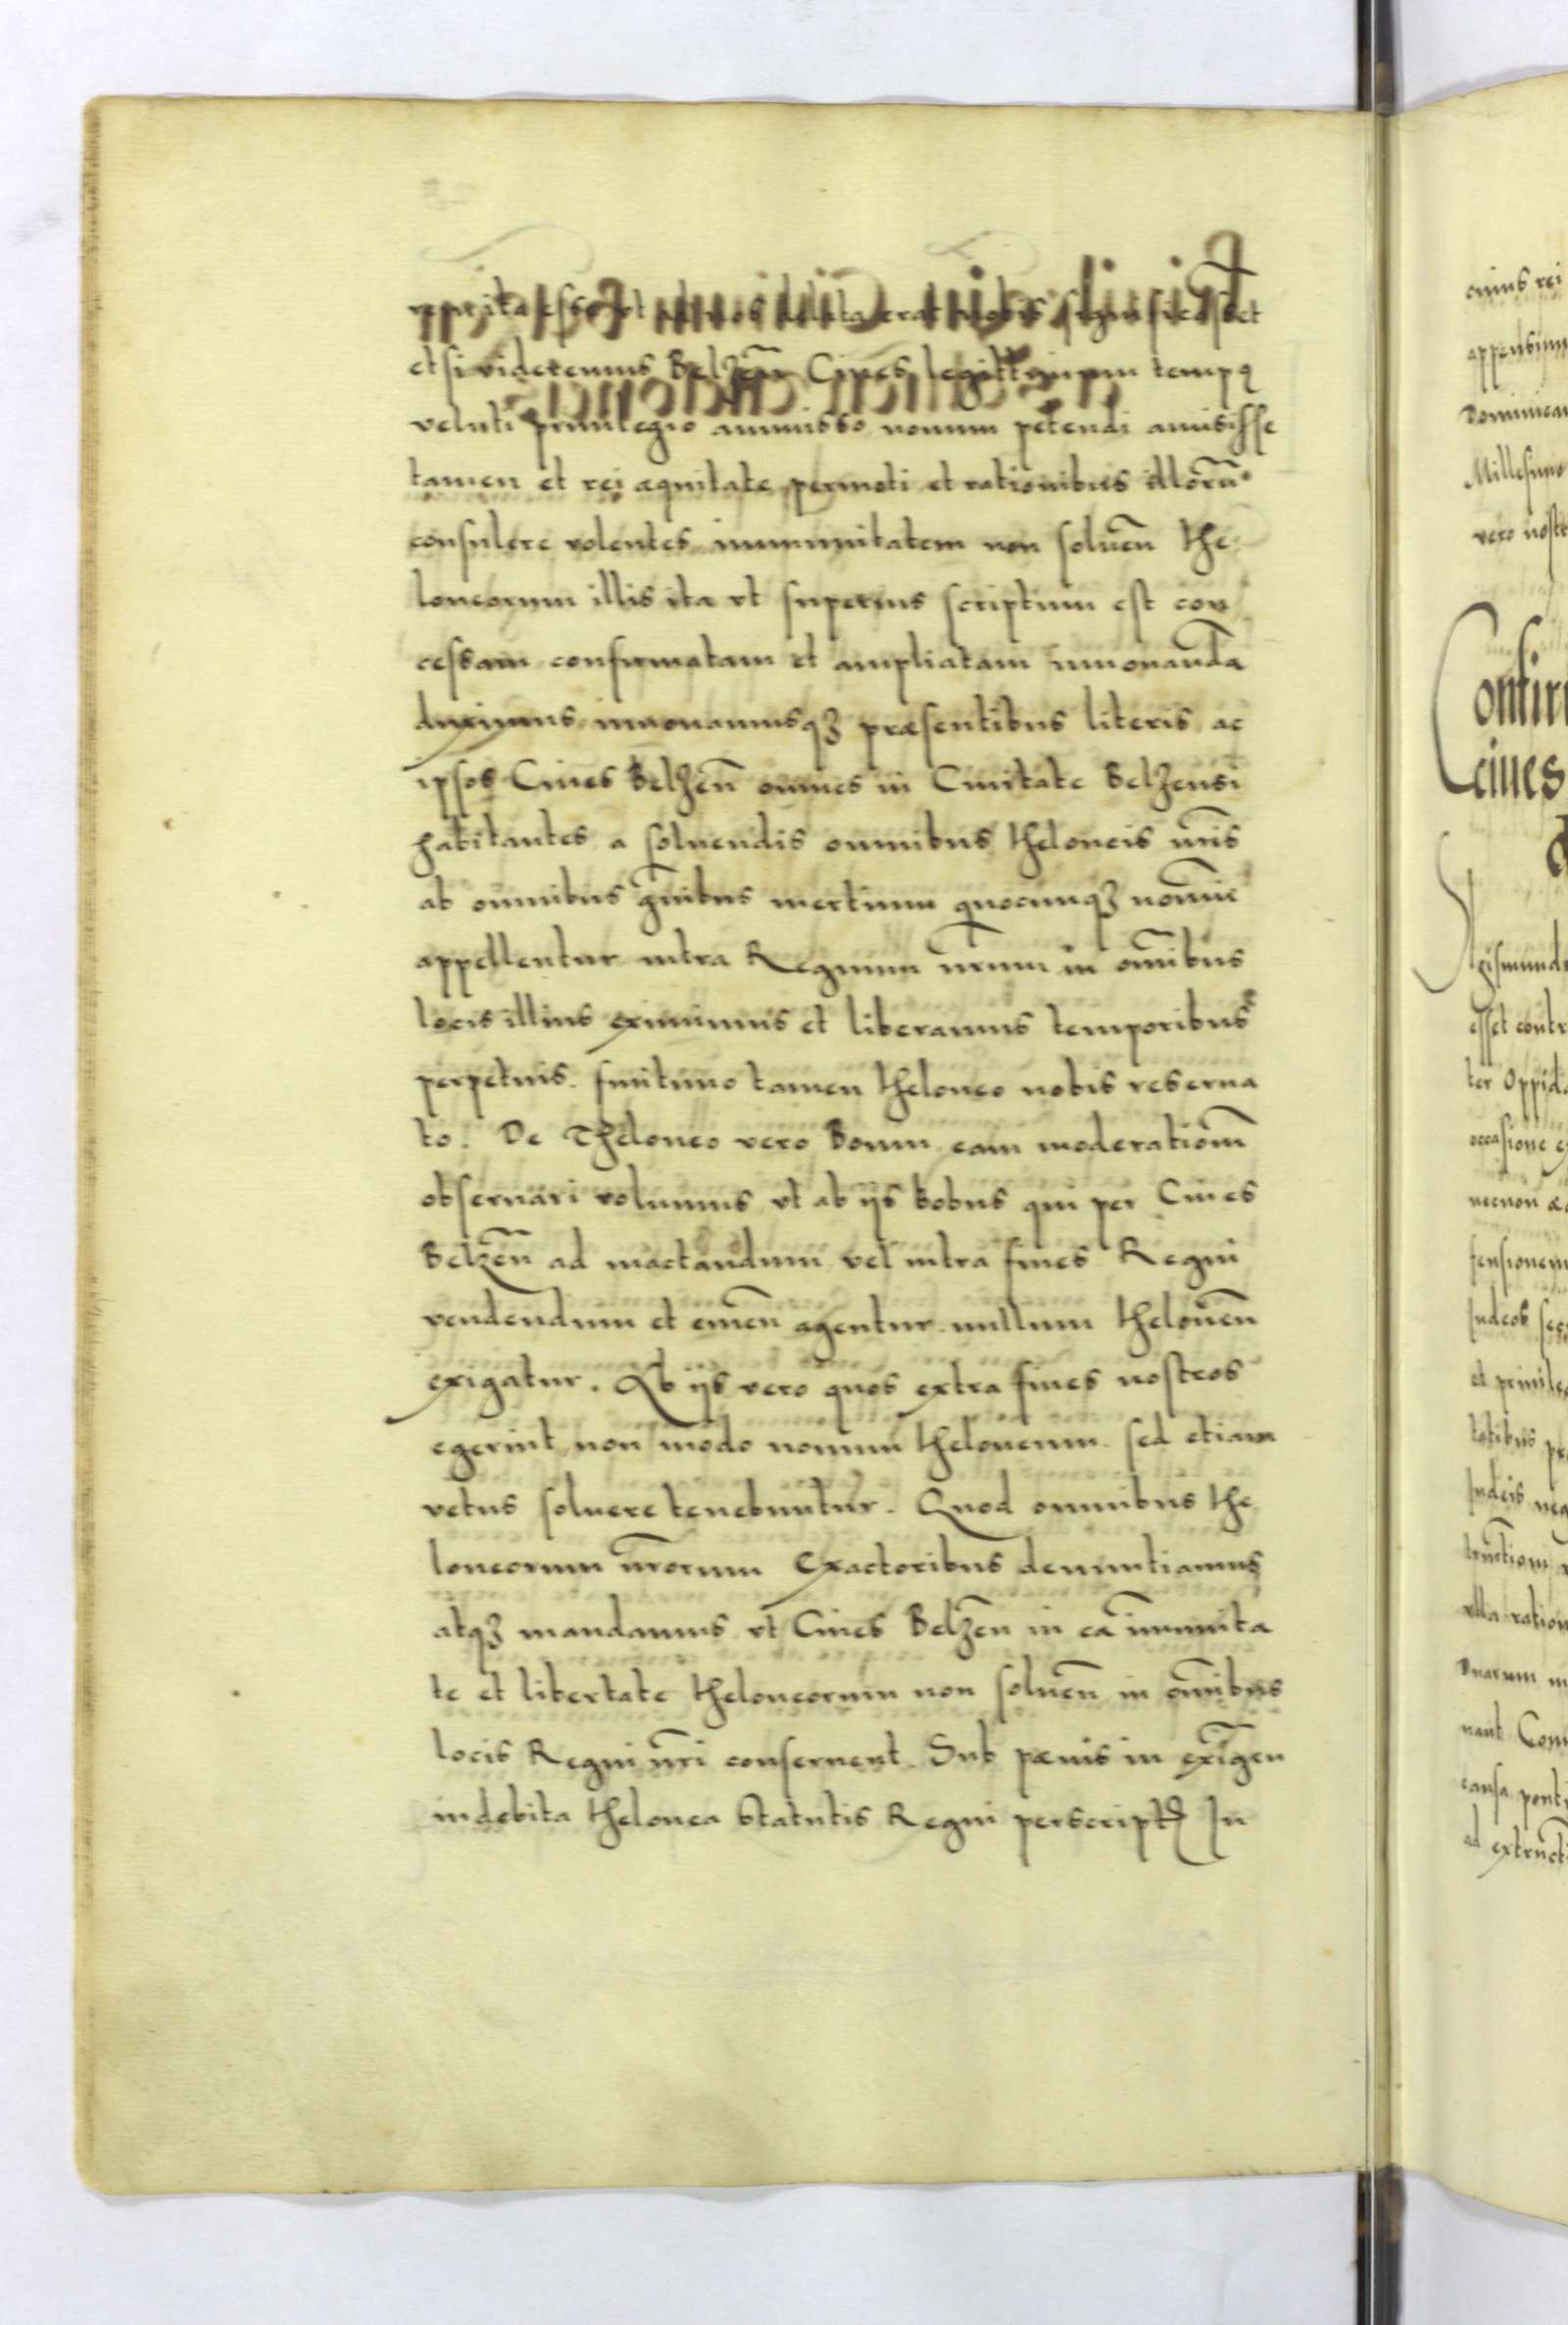 et si videremus Belzeñ Cives legittimum tempq
veluti privilegio ammisso nouum petendi amisisse
tamen et rei æquitate permoti et rationibus illorũ
consulere volentes immunitatem non soluẽn the
loneorum illis ita vt superius scriptum est con
cessam confirmatam et ampliatam innouanda
duximus innouamusqꝫ præsentibus literis ac
ipsos Ciues Belzeñ omnes in Ciuitate Belzensi
habitantes a soluendis omnibus theloneis nr̃is
ab omnibus gñibus mertium quocunqꝫ nomĩe
appellentur intra Regnum nr̃um in om̃ibus
locis illius eximimus et liberamus temporibus
perpetuis. finitimo tamen theloneo nobis reserua
to. De Theloneo vero Boum eam moderatiom̃
obseruari volumus vt ab ijs bobus qui per Ciues
Belzeñ ad mactandum vel intra fines Regni
vendendum et emeñ agentur nullum theloneũ
exigatur. Ab ijs vero quos extra fines nostros
egerint non modo nouum theloneum sed etiam
vetus soluere tenebuntur. Quod omnibus the
loneorum nr̃orum Exactoribus denuntiamus
atqꝫ mandamus vt Ciues Belzeñ in eã immunita
te et libertate theloneorum non soluẽn in om̃ibus
locis Regni nr̃i conseruent. Sub pænis in exigen
indebita thelonea Statutis Regni perscriptis In
cuius rei
appensum
Dominican
Millesimo
vero nostr
Confir
ciues
igismund
esset contr
ter Oppida
occasione e
necnon
fensionem
Iudeos sec
et priuile
Iudeis neg
vlla ration
Duarum
nant Com
causa ponti
ad extruct